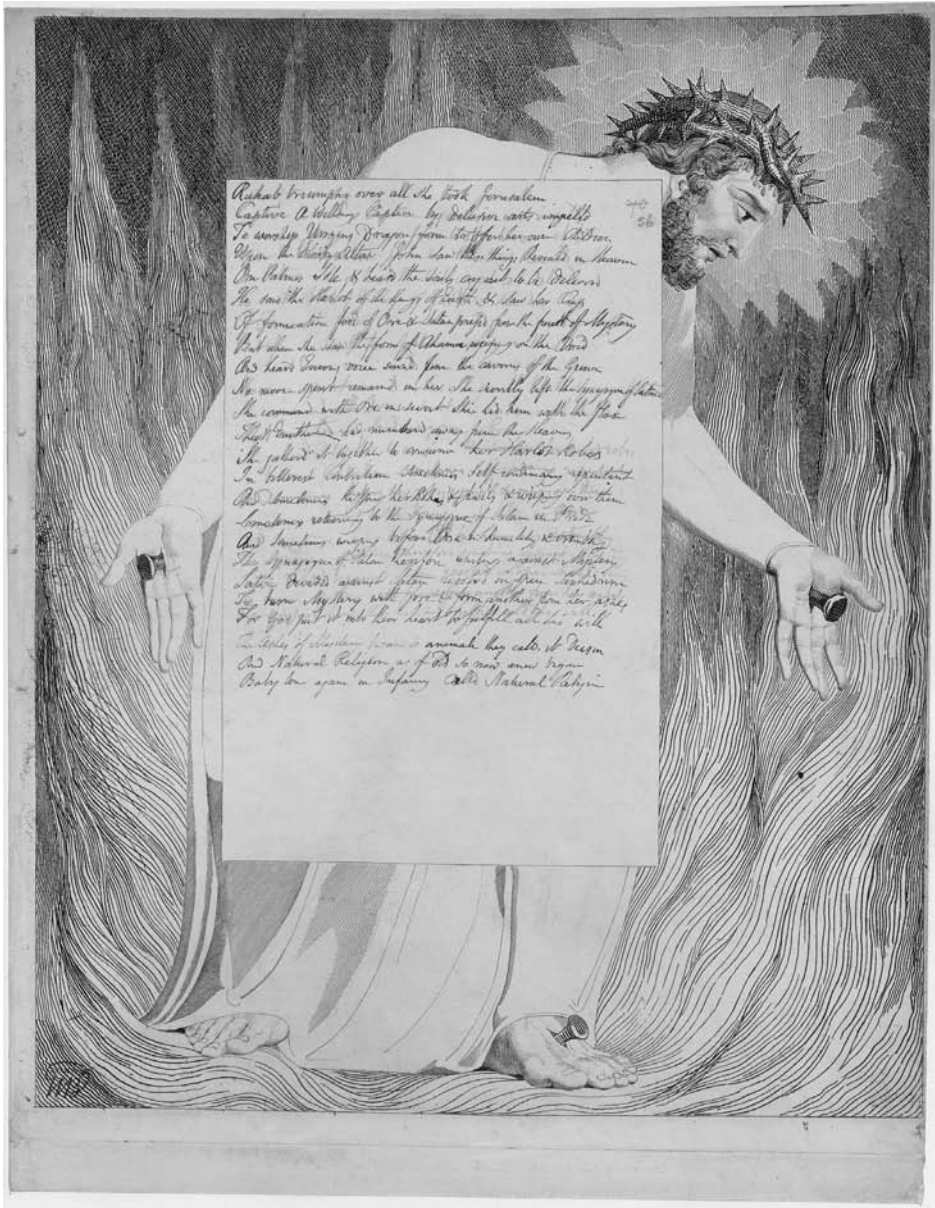 Rahab triumphs over all she took Jerusalem
Captive A Willing Captive by delusive arts impelld
To worship Urizens Dragon form to offer her own Children
Upon the bloody Altar. John Saw these things Reveald in Heaven
On Patmos Isle & heard the Souls cry out to be deliverd
He saw the Harlot of the Kings of Earth & saw her Cup
Of fornication food of Orc & Satan pressd from the fruit of Mystery
But when she saw the form of Ahania weeping on the Void
And heard Enions voice sound from the caverns of the Grave
No more spirit remaind in her She secretly left the Synagogue of Satan
She commund with Orc in secret She hid him with the flax
That Enitharmon had numberd away from the Heavens
She gatherd it together to consume her Harlot Robes
In bitterest Contrition sometimes Self condemning repentant
And sometimes kissing her Robes & jewels & weeping over them
Sometimes returning to the Synagogue of Satan in Pride
And sometimes weeping before Orc in humility & trembling
The Synagogue of Satan therefore uniting against Mystery
Satan divided against Satan resolvd in open Sanhedrim
To burn Mystery with fire & form another from her ashes
For God put it into their heart to fulfill all his will
The Ashes of Mystery began to animate they calld it Deism
And Natural Religion as of old so now anew began
Babylon again in Infancy Calld Natural Religion
56